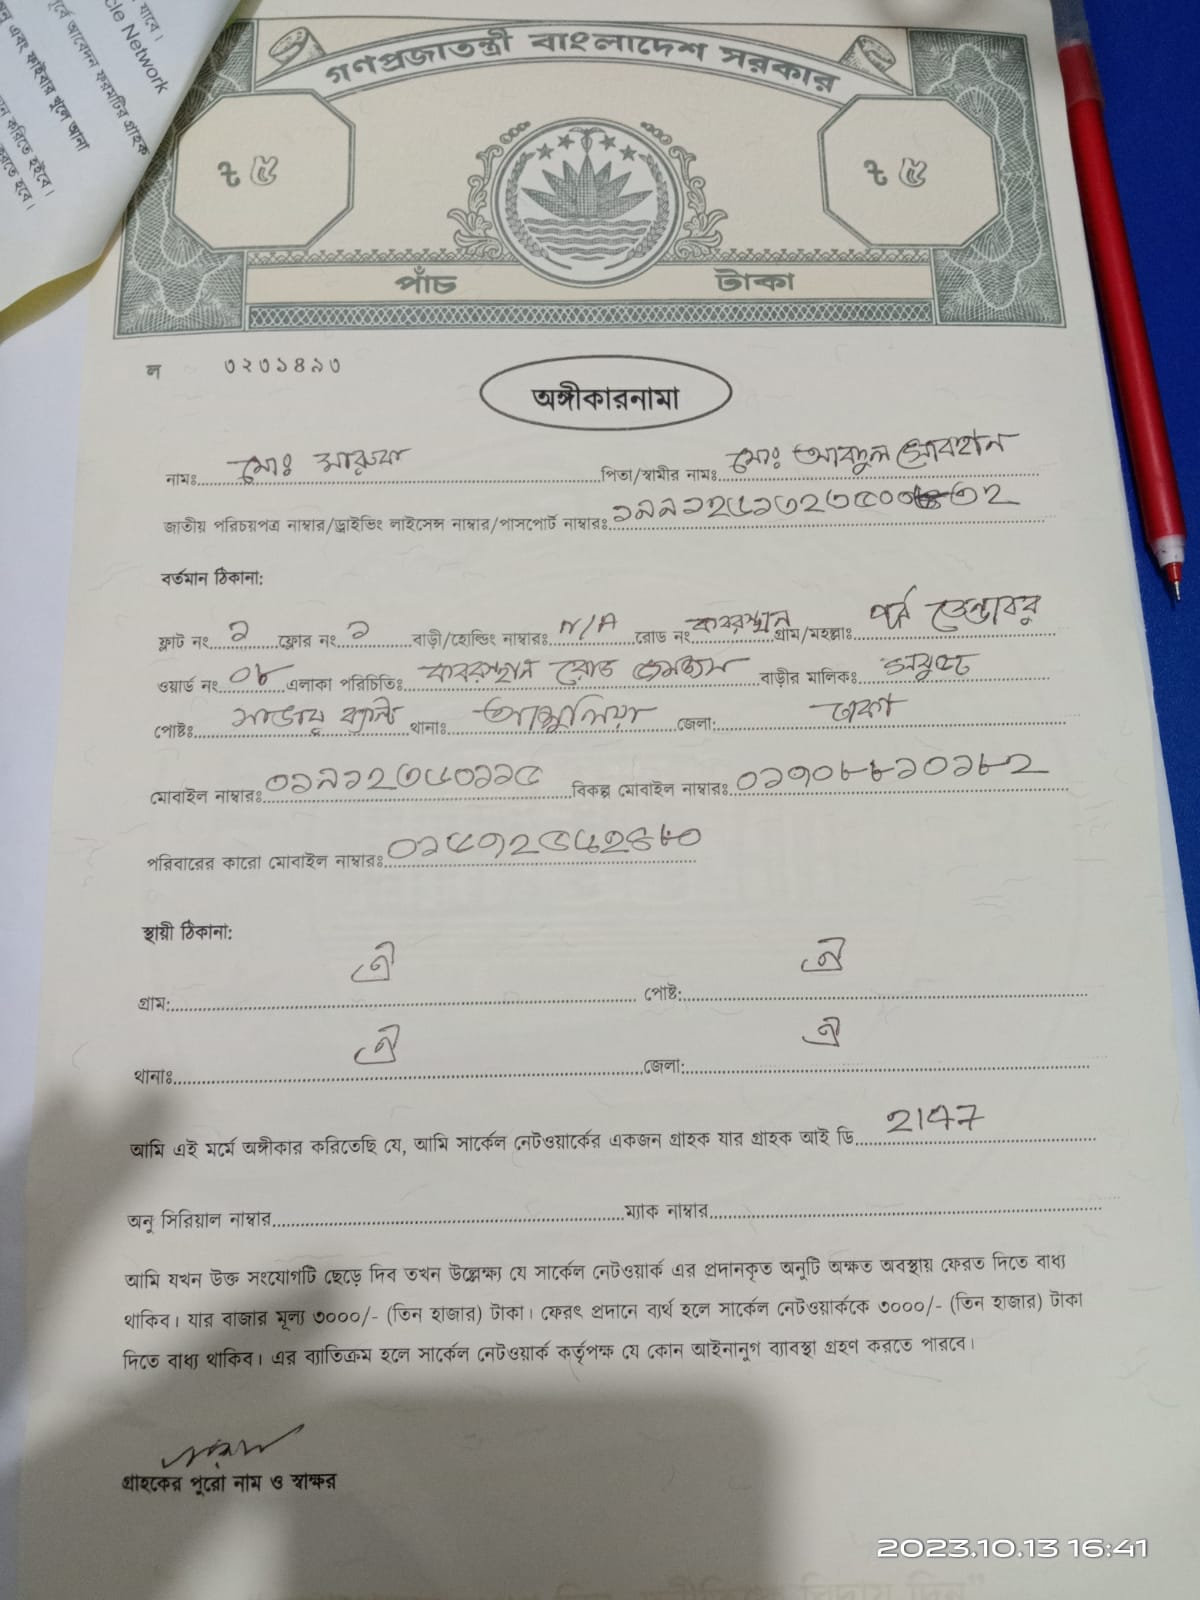 যাবে।
cle Network
পূর্বে আবেদন ফরমটির গ্রাহক
এবং ফাইবার খুলে আনা
করিতে হইবে।
করতে হবে।
গণপ্রজাতন্ত্রী বাংলাদেশ সরকার
ট ৫ ট ৫
পাঁচ টাকা
ল ৩২৩১৪৯৩
অঙ্গীকারনামা
নামঃ মোঃ মারুফা পিতা/স্বামীর নামঃ মোঃ আবদুল সোবহান
জাতীয় পরিচয়পত্র নাম্বার/ড্রাইভিং লাইসেন্স নাম্বার/পাসপোর্ট নাম্বারঃ
বর্তমান ঠিকানা:
ফ্লাট নং ১ ফ্লোর নং ১ বাড়ী/হোল্ডিং নাম্বারঃ N/A রোড নং কবরস্থান গ্রাম/মহল্লাঃ পূর্ব ডেন্ডাবর
ওয়ার্ড নং ০৮ এলাকা পরিচিতিঃ কবরস্থান রোড বাড়ীর মালিকঃ
পোষ্টঃ সাভার ক্যান্ট থানাঃ আশুলিয়া জেলা: ঢাকা
মোবাইল নাম্বারঃ ০১৯১২৩৫০১১৫ বিকল্প মোবাইল নাম্বারঃ ০১৭০৮৮১০১৮২
পরিবারের কারো মোবাইল নাম্বারঃ
স্থায়ী ঠিকানা:
গ্রাম: ঐ পোষ্ট: ঐ
থানাঃ ঐ জেলা: ঐ
আমি এই মর্মে অঙ্গীকার করিতেছি যে, আমি সার্কেল নেটওয়ার্কের একজন গ্রাহক যার গ্রাহক আই ডি 2147
অনু সিরিয়াল নাম্বার ম্যাক নাম্বার
আমি যখন উক্ত সংযোগটি ছেড়ে দিব তখন উল্লেক্ষ্য যে সার্কেল নেটওয়ার্ক এর প্রদানকৃত অনুটি অক্ষত অবস্থায় ফেরত দিতে বাধ্য
থাকিব। যার বাজার মূল্য ৩০০০/- (তিন হাজার) টাকা। ফেরৎ প্রদানে ব্যর্থ হলে সার্কেল নেটওয়ার্ককে ৩০০০/- (তিন হাজার) টাকা
দিতে বাধ্য থাকিব। এর ব্যাতিক্রম হলে সার্কেল নেটওয়ার্ক কর্তৃপক্ষ যে কোন আইনানুগ ব্যাবস্থা গ্রহণ করতে পারবে।
গ্রাহকের পুরো নাম ও স্বাক্ষর
2023.10.13 16:41